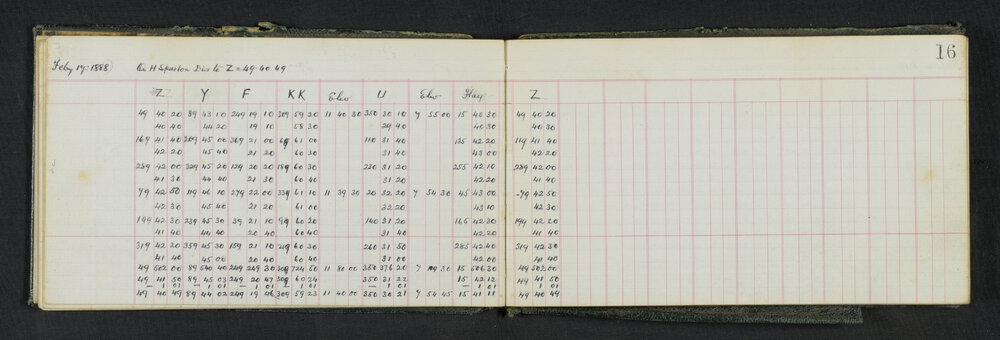 16
Feby 17. 1888 On H Station Dis to Z = 49 40 49
Z Y F KK Elev U Elev Flag Z
49 40 20 89 43 10 249 19 10 309 59 20 11 40 30 350 30 10 4 55 00 15 40 30 49 40 20
40 40 44 20 19 10 58 30 29 40 40 30 40 30
169 41 40 209 45 00 369 21 00 69 61 00 110 31 40 135 42 20 119 41 40
42 20 45 40 21 20 60 30 31 40 43 00 42 20
289 42 00 329 45 20 129 20 20 189 60 30 230 31 20 255 42 10 289 42 00
41 30 44 40 21 30 60 40 31 20 42 20 41 40
79 42 50 119 46 10 279 22 00 339 61 10 11 39 30 20 32 20 4 54 30 45 43 00 79 42 50
42 30 45 40 21 20 61 00 32 20 43 10 42 30
199 42 30 239 45 30 39 21 10 99 60 20 140 31 20 165 42 30 199 42 20
41 40 44 40 20 40 60 40 31 40 42 20 41 40
319 42 20 359 45 30 159 21 10 219 60 30 260 31 50 285 42 40 319 42 30
41 40 45 00 20 40 60 40 31 00 42 00 41 40
49 502 00 89 540 40 249 249 30 309 724 50 11 80 00 350 376 20 4 109 30 15 506 30 49 502 00
49 41 50 89 45 03 249 20 47 309 60 24 350 31 22 15 42 12 49 41 50
– 1 01 – 1 01 – 1 01 – 1 01 – 1 01 – 1 01 – 1 01
49 40 49 89 44 02 249 19 46 309 59 23 11 40 00 350 30 21 4 54 45 15 41 11 49 40 49